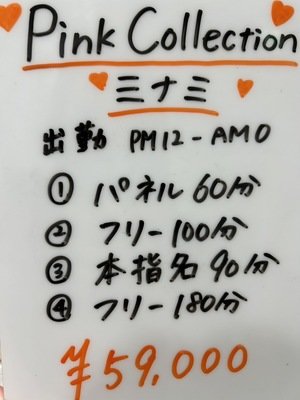 Pink Collection
ミナミ
出勤 PM12-AM0
① パネル 60分
② フリー 100分
③ 本指名 90分
④ フリー 180分
¥59,000